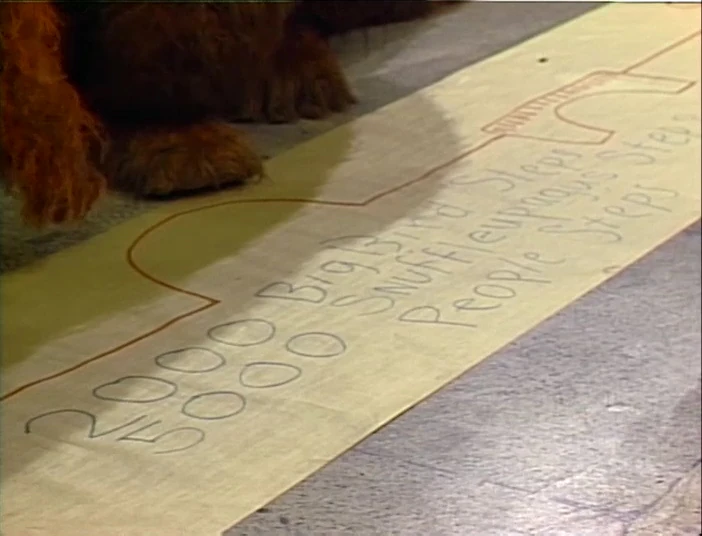 2000 BigBird Steps
5000 SNUFFlEupagus Steps
People Steps